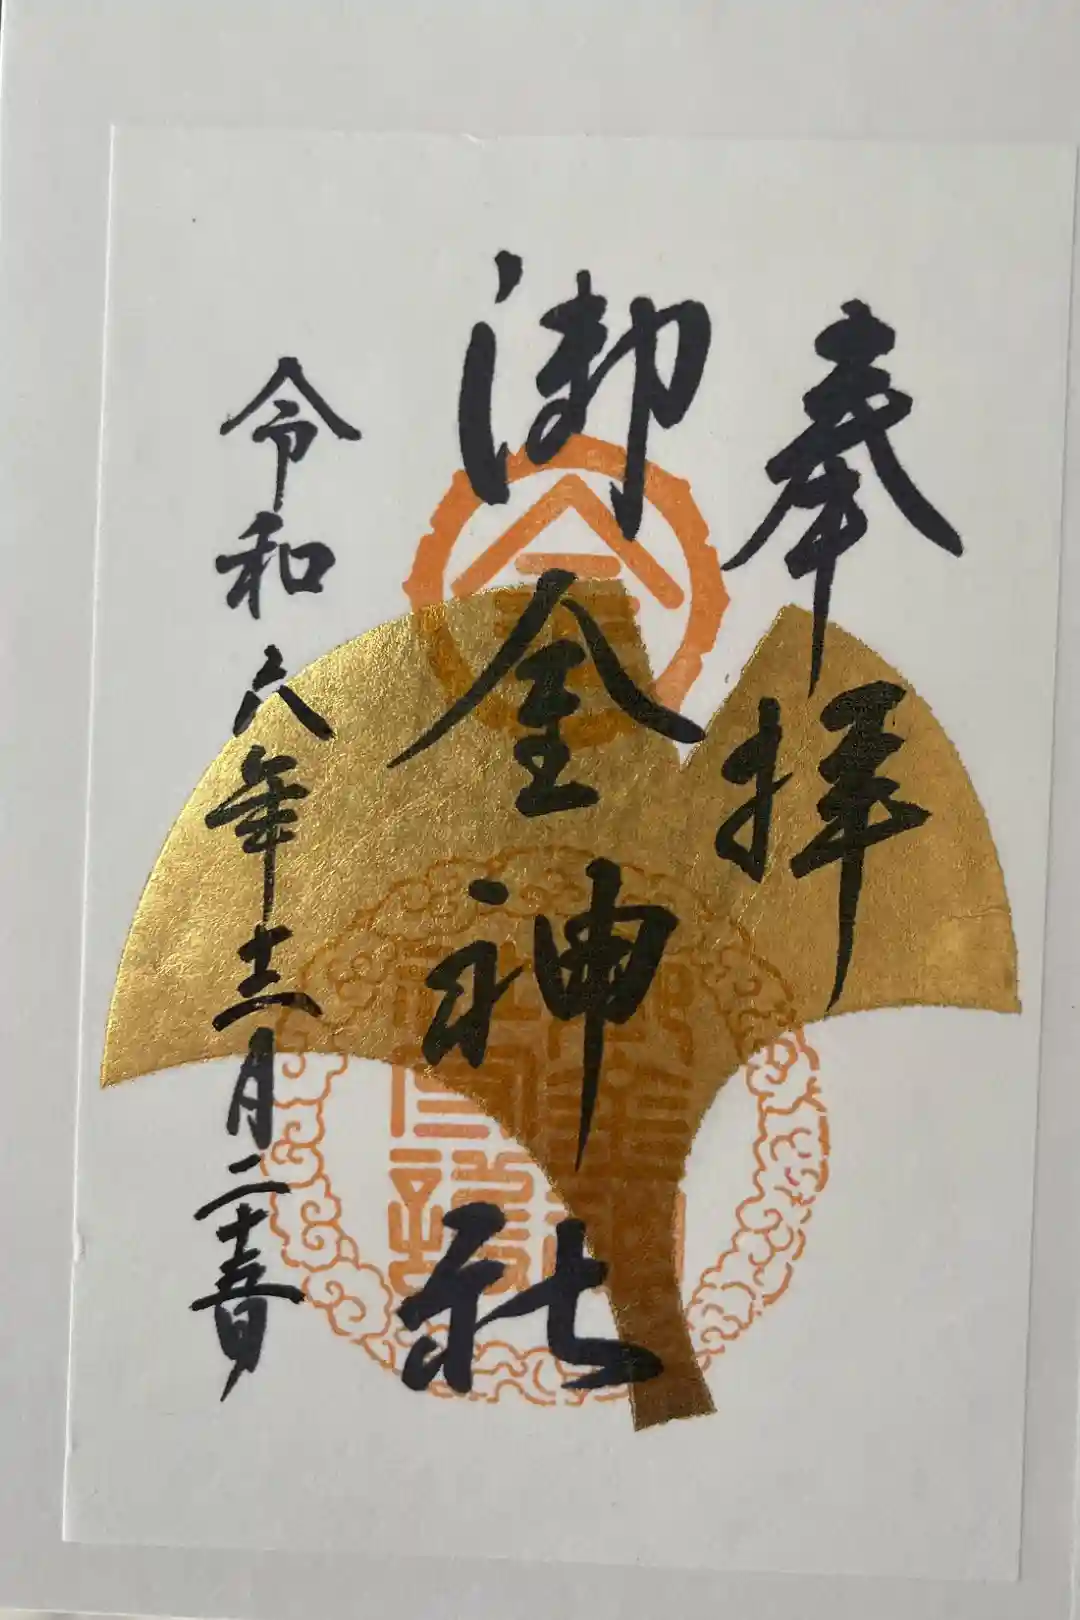 奉拝
御金神社
令和六年十二月二十日
金